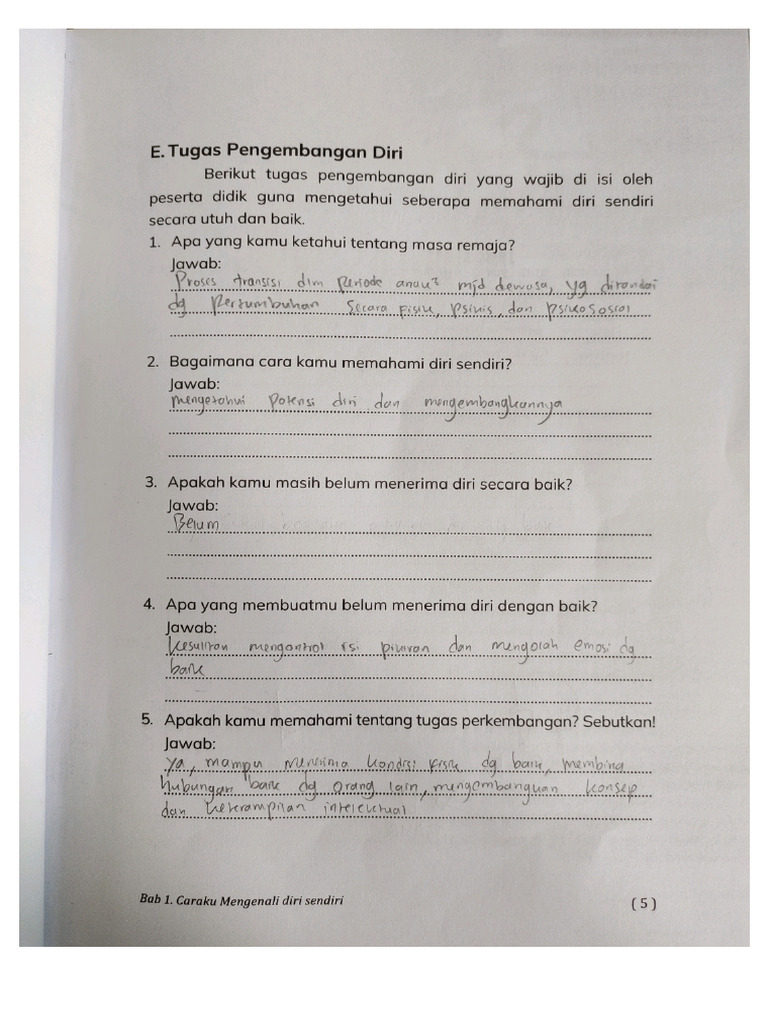 E. Tugas Pengembangan Diri
Berikut tugas pengembangan diri yang wajib di isi oleh
peserta didik guna mengetahui seberapa memahami diri sendiri
secara utuh dan baik.
1. Apa yang kamu ketahui tentang masa remaja?
Jawab:
Proses transisi dlm periode anak² mjd dewasa, yg ditandai
dg pertumbuhan secara fisik, psikis, dan psikososial
2. Bagaimana cara kamu memahami diri sendiri?
Jawab:
mengetahui potensi diri dan mengembangkannya
3. Apakah kamu masih belum menerima diri secara baik?
Jawab:
Belum
4. Apa yang membuatmu belum menerima diri dengan baik?
Jawab:
Kesulitan mengontrol isi pikiran dan mengolah emosi dg
baik
5. Apakah kamu memahami tentang tugas perkembangan? Sebutkan!
Jawab:
Ya, mampu menerima kondisi fisik dg baik, membina
hubungan baik dg orang lain, mengembangkan konsep
dan keterampilan intelektual
Bab 1. Caraku Mengenali diri sendiri
( 5 )